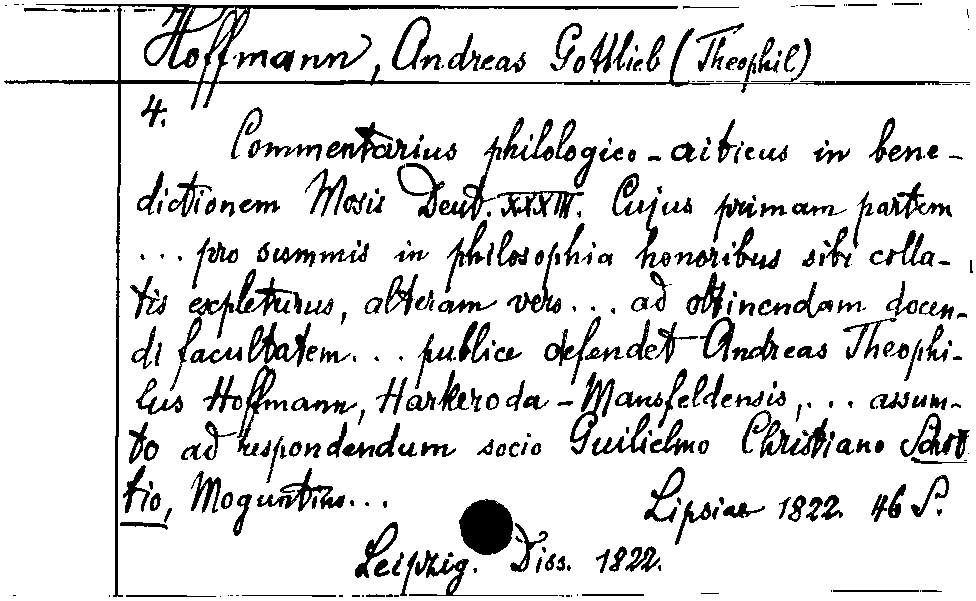 Hoffmann, Andreas Gottlieb (Theophil)
4.
Commentarius philologico-criticus in bene-
dictionem Mosis Deut. XXXIII. Cujus primam partem
... pro summis in philosophia honoribus sibi colla-
tis expleturus, alteram vero... ad obtinendam docen-
di facultatem... publice defendet Andreas Theophi-
lus Hoffmann, Harkeroda-Mansfeldensis,... assum-
to ad respondendum socio Guilielmo Christiano Schot
tio, Moguntino...
Lipsiae 1822. 46 S.
Leipzig. Diss. 1822.